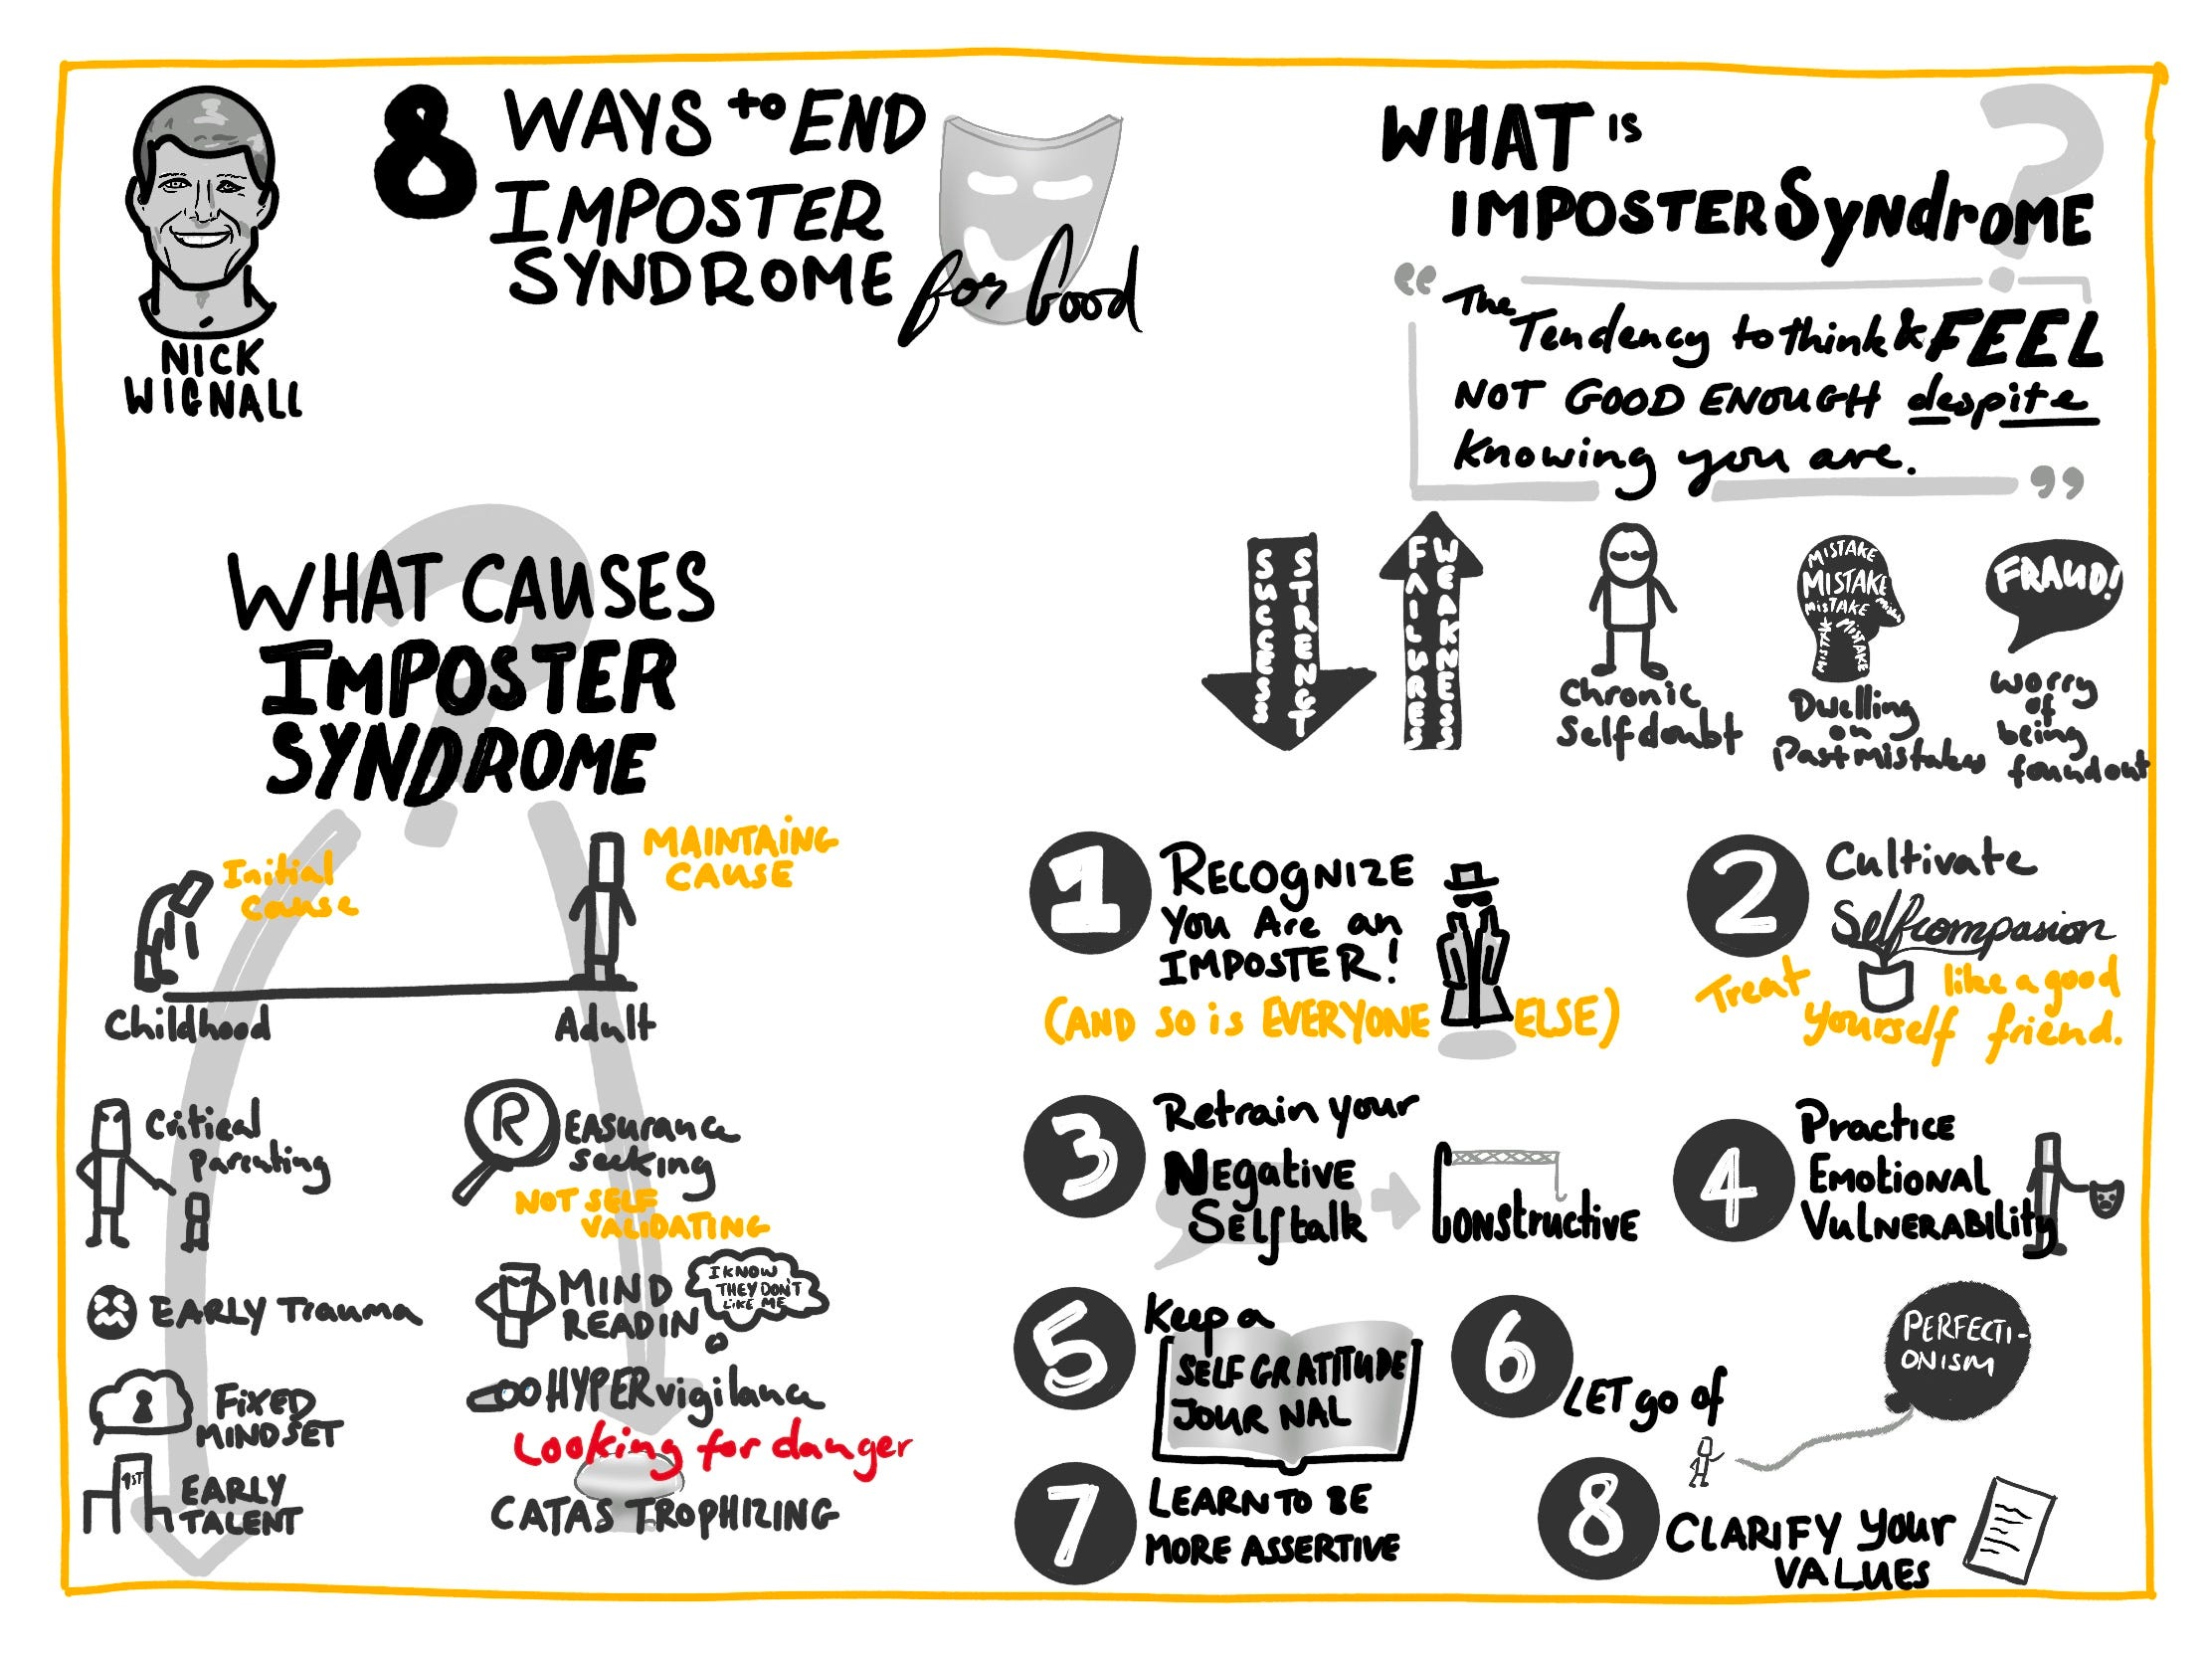 NICK
WIGNALL
8 WAYS to END
IMPOSTER
SYNDROME for Good
WHAT IS
IMPOSTER SYNDROME
?
“ The
Tendency to think & FEEL
NOT GOOD ENOUGH despite
knowing you are. ”
SUCCESS
STRENGT
FAILURES
WEAKNESS
Chronic
Selfdoubt
MISTAKE
MISTAKE
MISTAKE
MISTAKE
MISTAKE
Dwelling
on
Past mistakes
FRAUD!
worry
of
being
found out
?
WHAT CAUSES
IMPOSTER
SYNDROME
Initial
cause
MAINTAING
CAUSE
Childhood
Adult
Critical
parenting
EARLY Trauma
FIXED
MINDSET
1ST
EARLY
TALENT
REASurance
seeking
NOT SELF
VALIDATING
MIND
READIN
I KNOW
THEY DON'T
LIKE ME
HYPERvigilance
Looking for danger
CATASTROPHIZING
1 RECOGNIZE
You Are an
IMPOSTER!
(AND so is EVERYONE ELSE)
2 Cultivate
Selfcompasion
Treat like a good
yourself friend.
3 Retrain your
NEgative
Selftalk
Constructive
4 Practice
EMOTIONAL
VulNERABIlity
5 Keep a
SELF GRATITUDE
JOURNAL
6 LET go of
PERFECTI-
ONISM
7 LEARN TO BE
MORE ASSERTIVE
8 CLARIFY your
VALUES